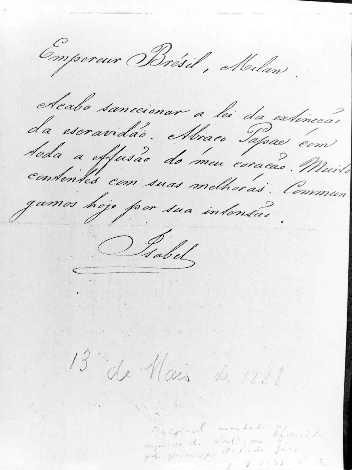 Empereur Brésil, Milan.
Acabo sanccionar a lei da extincção
da escravidão. Abraço Papae com
toda a effusão do meu coração. Muito
contentes com suas melhoras. Commun
gamos hoje por sua intensão.
Isabel
13 de Maio de 1888